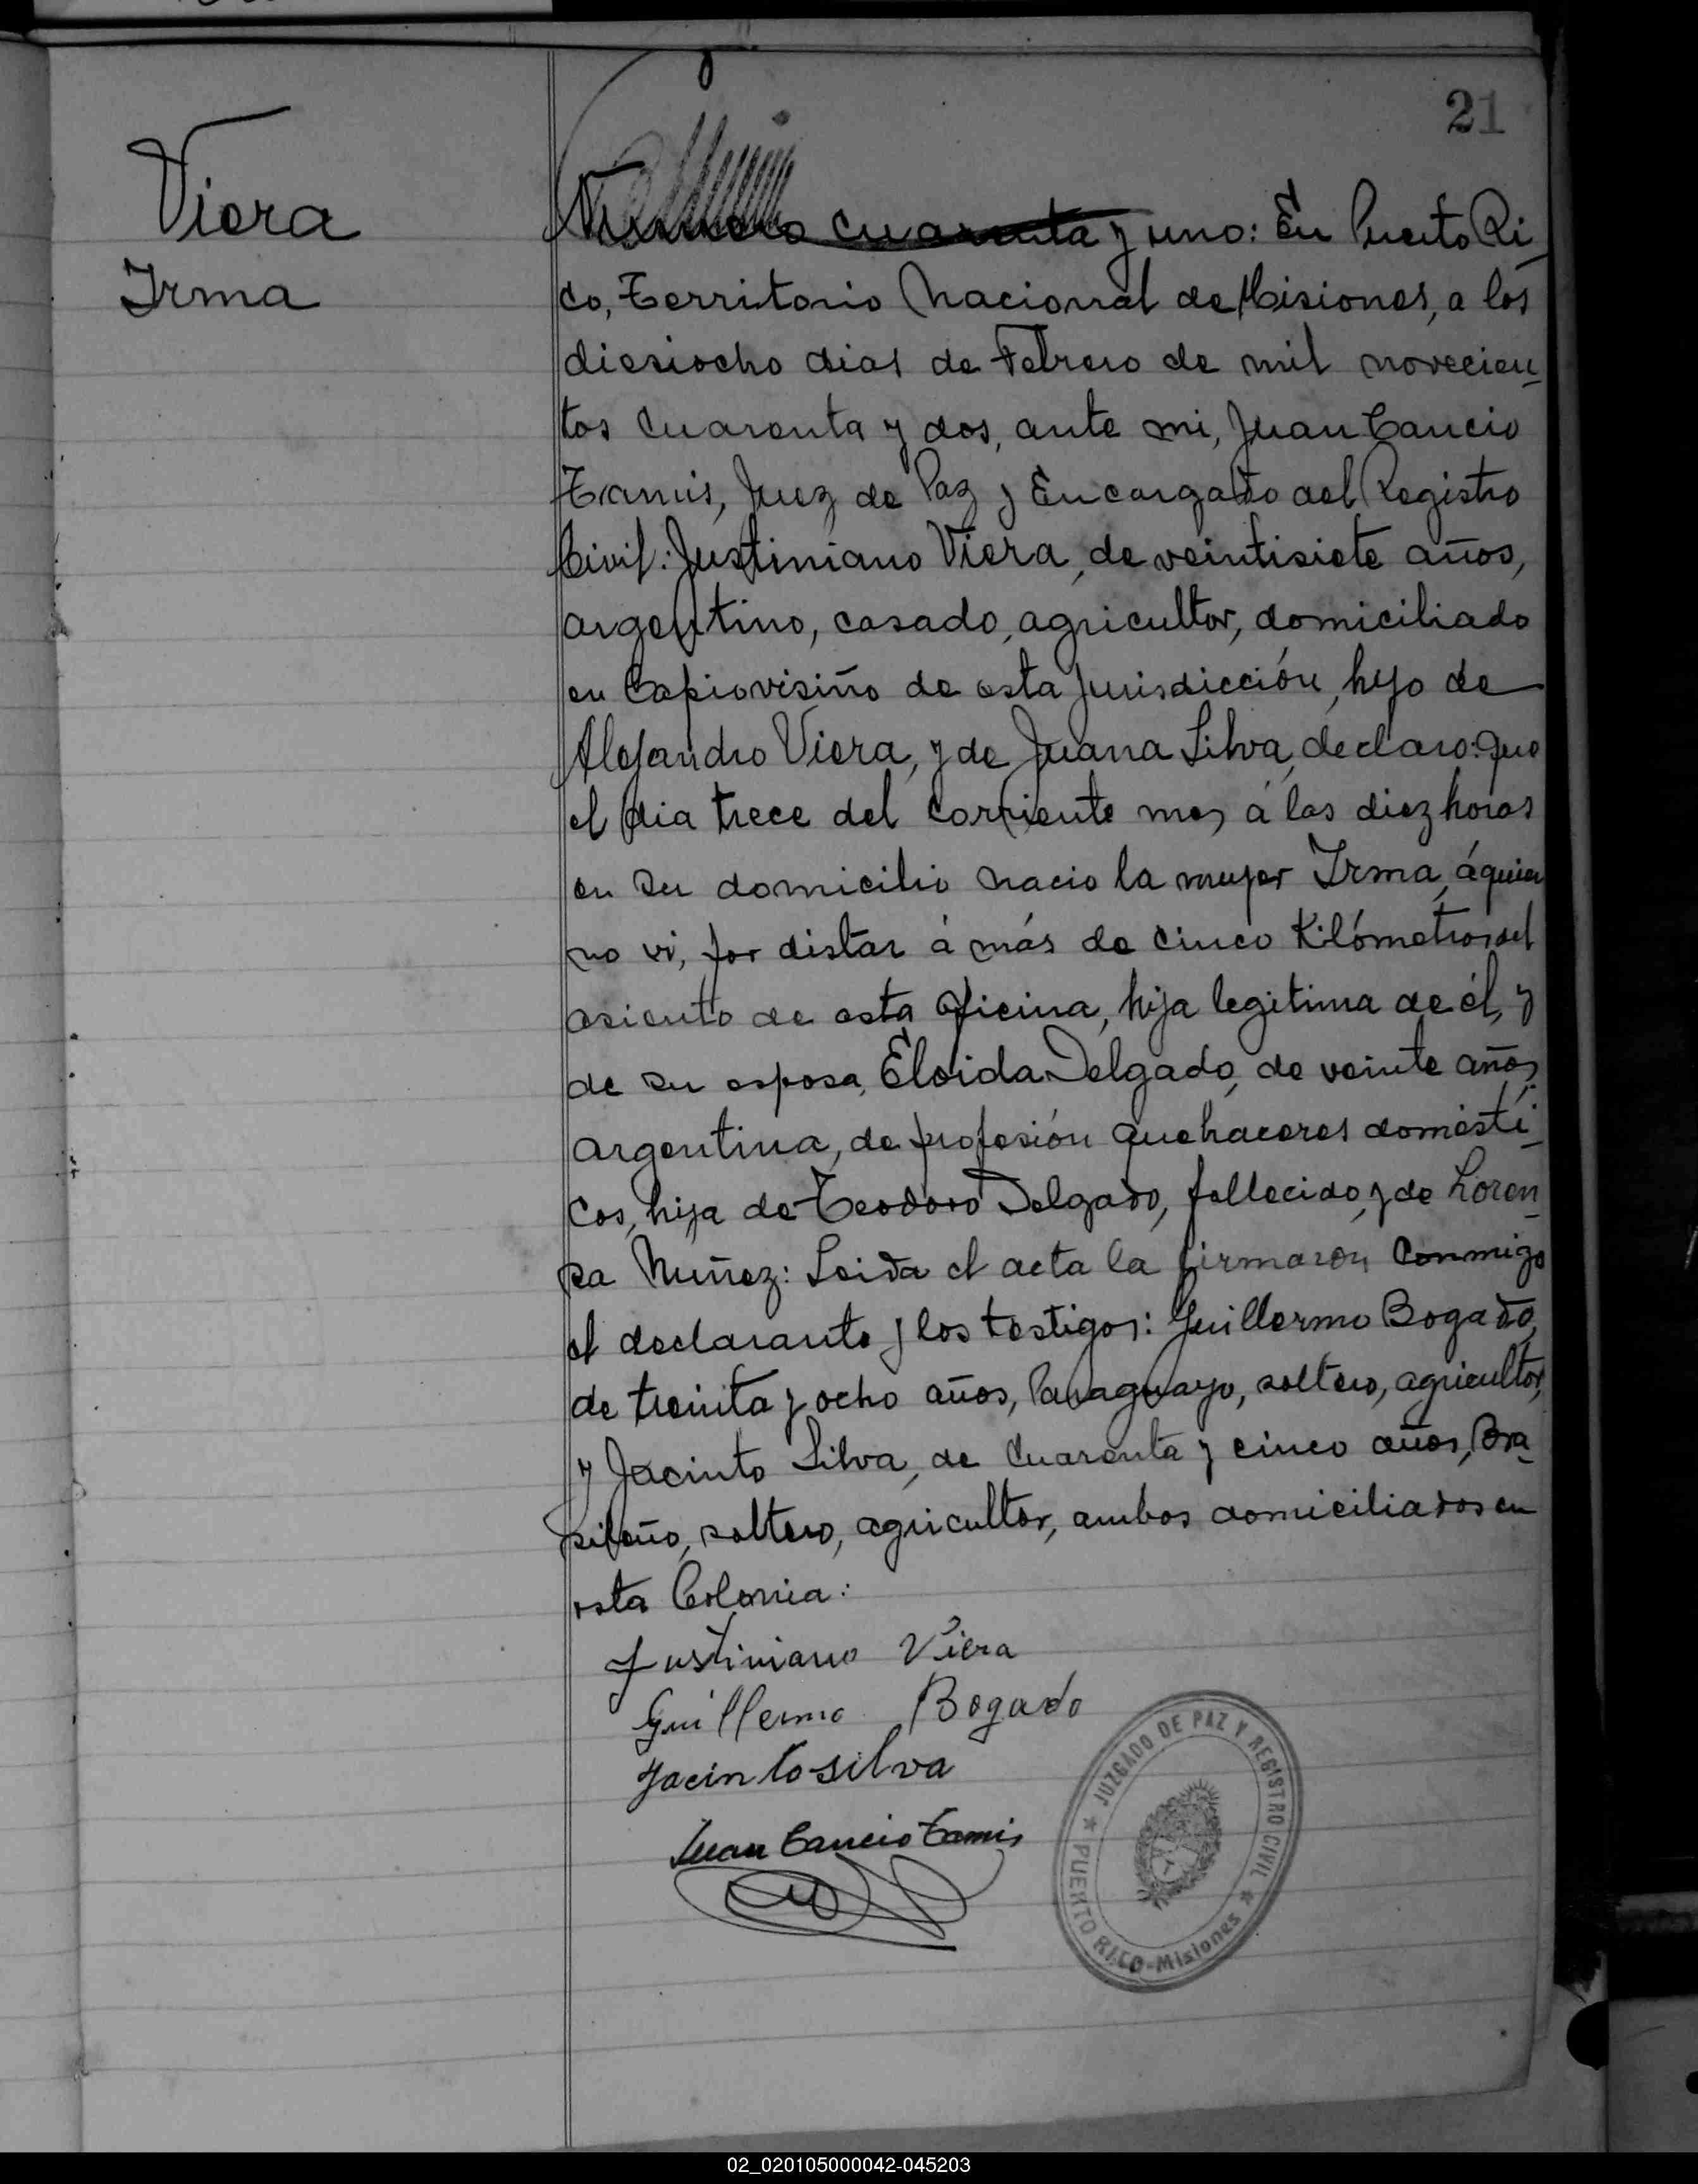 21
Viera
Irma
Numero cuarenta y uno: En Puerto Ri-
co, Territorio Nacional de Misiones, a los
diesiocho dias de Febrero de mil novecien-
tos cuarenta y dos, ante mi, Juan Cancio
Tramis, Juez de Paz y Encargado del Registro
Civil: Justiniano Viera, de veintisiete años,
argentino, casado, agricultor, domiciliado
en Capiovisiño de esta jurisdicción, hijo de
Alejandro Viera, y de Juana Silva, declaro: que
el dia trece del corriente mes á las diez horas
en su domicilio nacio la mujer Irma, á quien
no vi, por distar á más de cinco Kilómetros del
asiento de esta oficina, hija legitima de él, y
de su esposa, Eloida Delgado, de veinte años,
argentina, de profesión quehaceres domésti-
cos, hija de Teodoro Delgado, fallecido, y de Loren-
sa Nuñez: Leida el acta la firmaron conmigo
el declarante y los testigos: Guillermo Bogado,
de treinta y ocho años, Paraguayo, soltero, agricultor,
y Jacinto Silva, de cuarenta y cinco años, Bra-
sileño, soltero, agricultor, ambos domiciliados en
esta Colonia:
Justiniano Viera
Guillermo Bogado
Jacinto silva
Juan Cancio Tamis
JUZGADO DE PAZ Y REGISTRO CIVIL
PUERTO RICO - Misiones
02_020105000042-045203